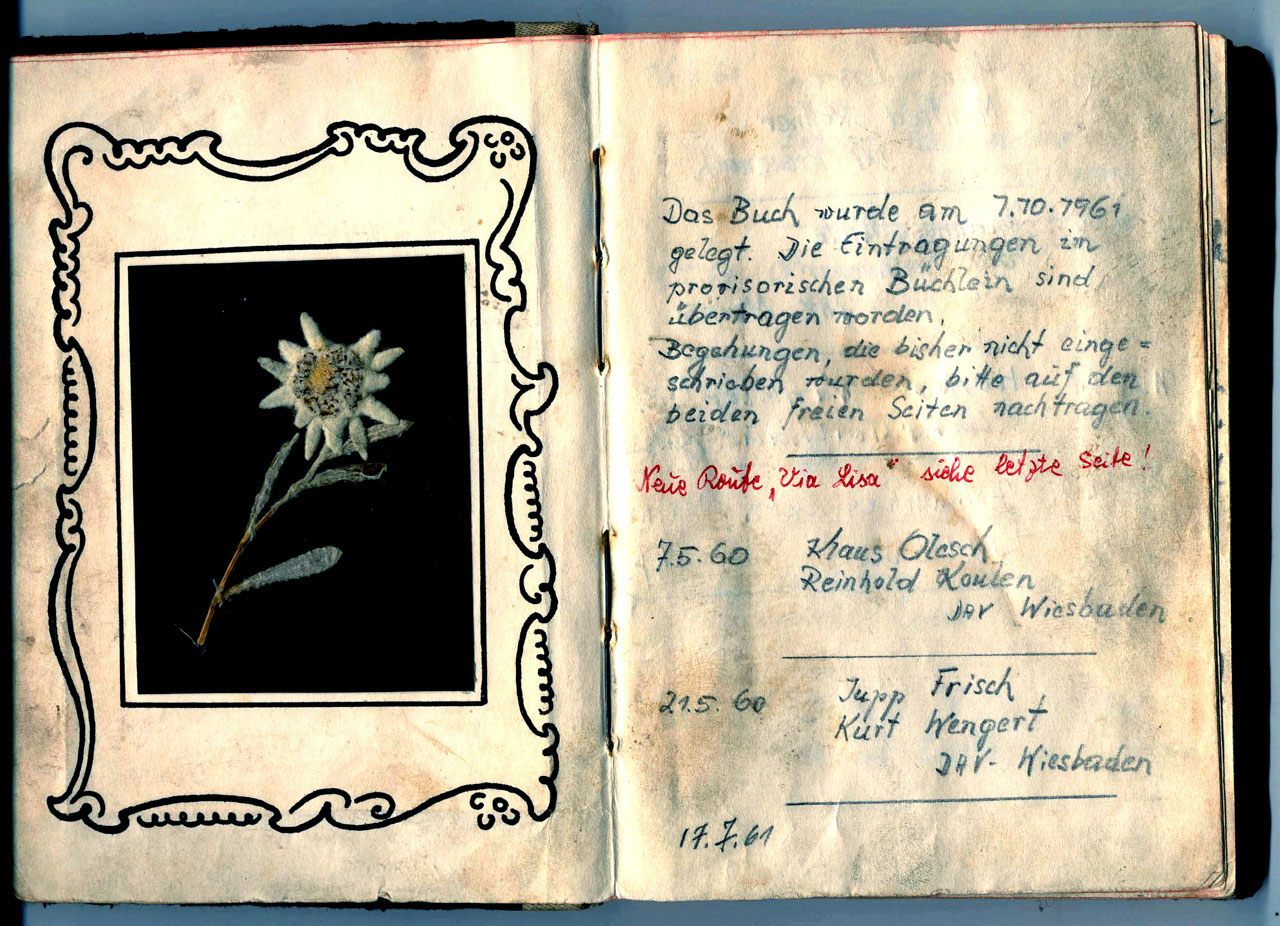 Das Buch wurde am 7.10.1961
gelegt. Die Eintragungen im
provisorischen Büchlein sind
übertragen worden.
Begehungen, die bisher nicht einge=
schrieben wurden, bitte auf den
beiden freien Seiten nachtragen.
Neue Route „Via Lisa" siehe letzte Seite!
7.5.60 Klaus Olesch
Reinhold Koulen
DAV Wiesbaden
21.5.60 Jupp Frisch
Kurt Wengert
DAV- Wiesbaden
17.7.61